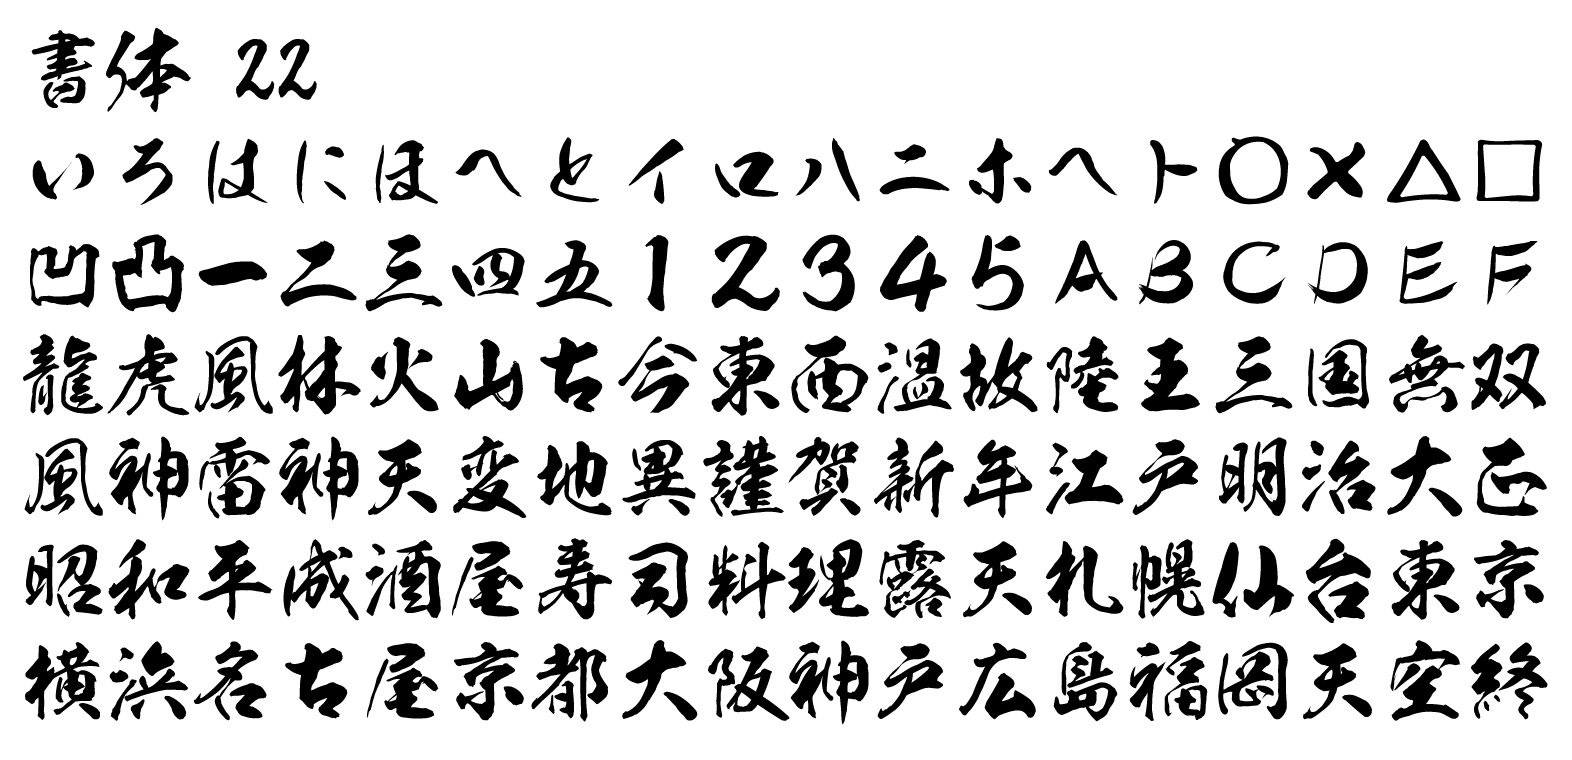 書体 22
いろはにほへとイロハニホヘト○×△□
凹凸一二三四五12345ABCDEF
龍虎風林火山古今東西温故陸王三国無双
風神雷神天変地異謹賀新年江戸明治大正
昭和平成酒屋寿司料理露天札幌仙台東京
横浜名古屋京都大阪神戸広島福岡天空終